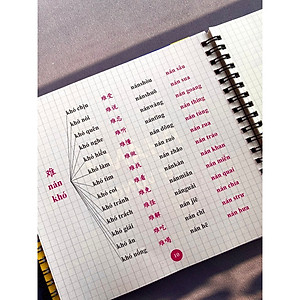 难
nán
khó
khó chịu 难受 nánshòu nán sâu
khó nói 难说 nánshuō nán sua
khó quên 难忘 nánwàng nán goang
khó nghe 难听 nántīng nán thing
khó hiểu 难懂 nán dǒng nán tủng
khó làm 难做 nán zuò nán zua
khó tìm 难找 nán zhǎo nán trảo
khó coi 难看 nánkàn nán khan
khó tránh 难免 nánmiǎn nán miẻn
khó trách 难怪 nánguài nán quai
khó giải 难解 nán jiě nán chia
khó ăn 难吃 nán chī nán strư
khó uống 难喝 nán hē nán hưa
18